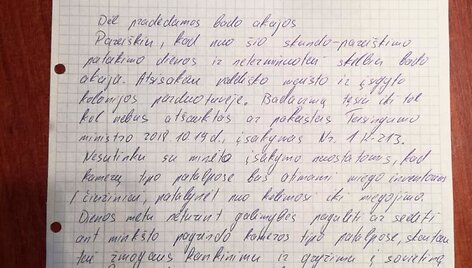 Dėl pradedamos bado akcijos
Pareiškiu, kad nuo šio skundo-pareiškimo
pateikimo dienos ir neterminuotai skelbiu bado
akciją. Atsisakau valdiško maisto ir įsigyto
kolonijos parduotuvėje. Badavimą tęsiu iki tol
kol nebus atšauktas ar pakeistas Teisingumo
ministro 2018.10.19d., įsakymas Nr. 1R-213.
Nesutinku su minėto įsakymo nuostatomis, kad
kamerų tipo patalpose bus atimami miego inventorius
/čiužiniai, patalynė/ nuo kėlimosi iki miegojimo.
Dienos metu neturint galimybės pagulėti ar sėdėti
ant minkšto pagrindo kameros tipo patalpose, skaitau
tai žmogaus kankinimu ir grįžimu į sovietinę